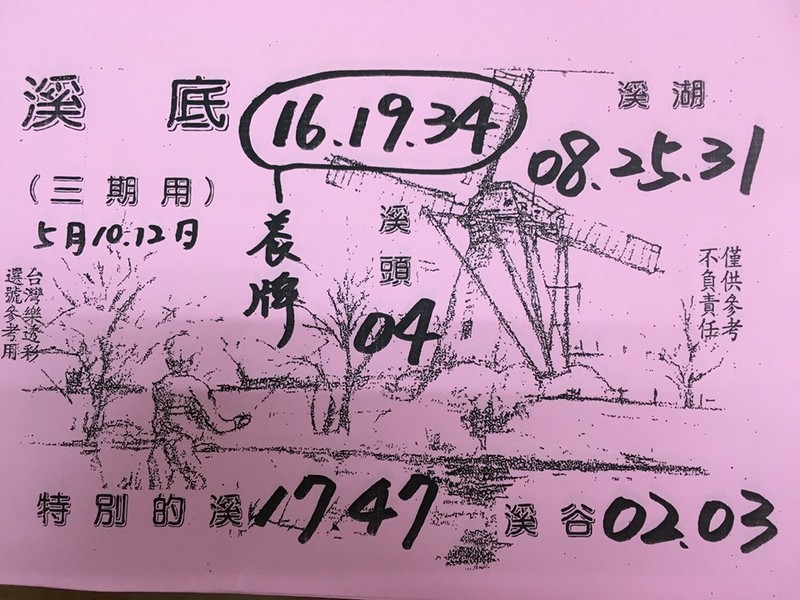 溪底
16.19.34
溪湖
08.25.31
(三期用)
5月10.12日
養牌
溪頭
04
僅供參考
不負責任
台灣樂透彩
選號參考用
特別的溪 17.47
溪谷 02.03